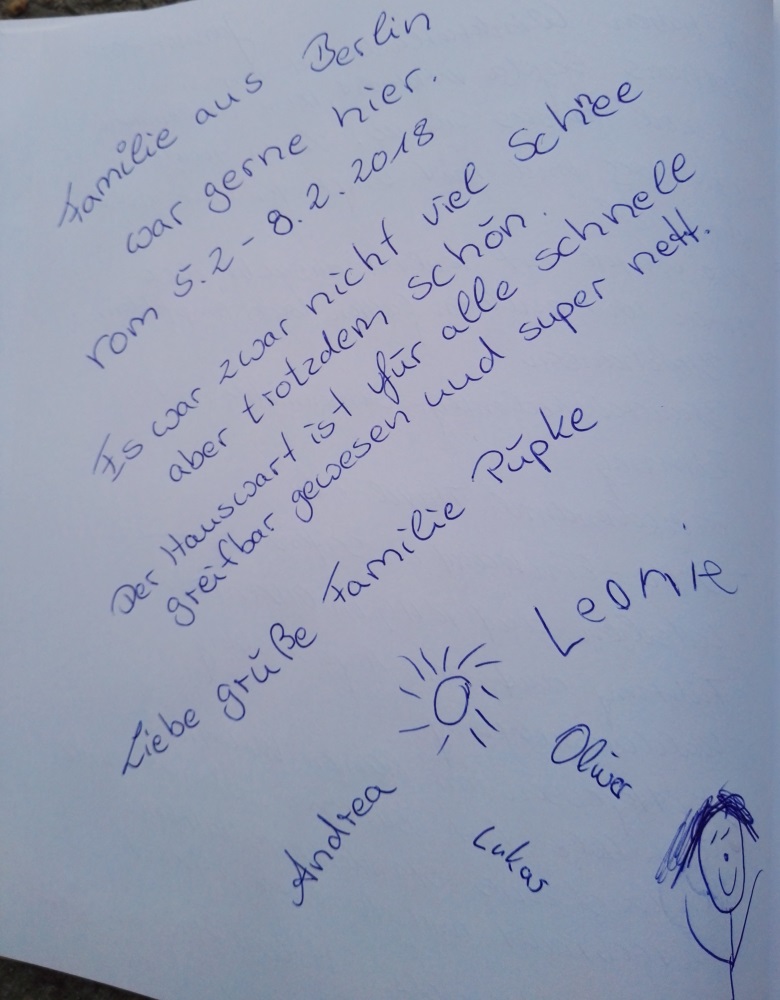 Familie aus Berlin
war gerne hier.
vom 5.2 - 8.2.2018
Es war zwar nicht viel Schnee
aber trotzdem schön.
Der Hauswart ist für alle schnell
greifbar gewesen und super nett.
Liebe grüße Familie Püpke
Leonie
Oliver
Andrea
Lukas